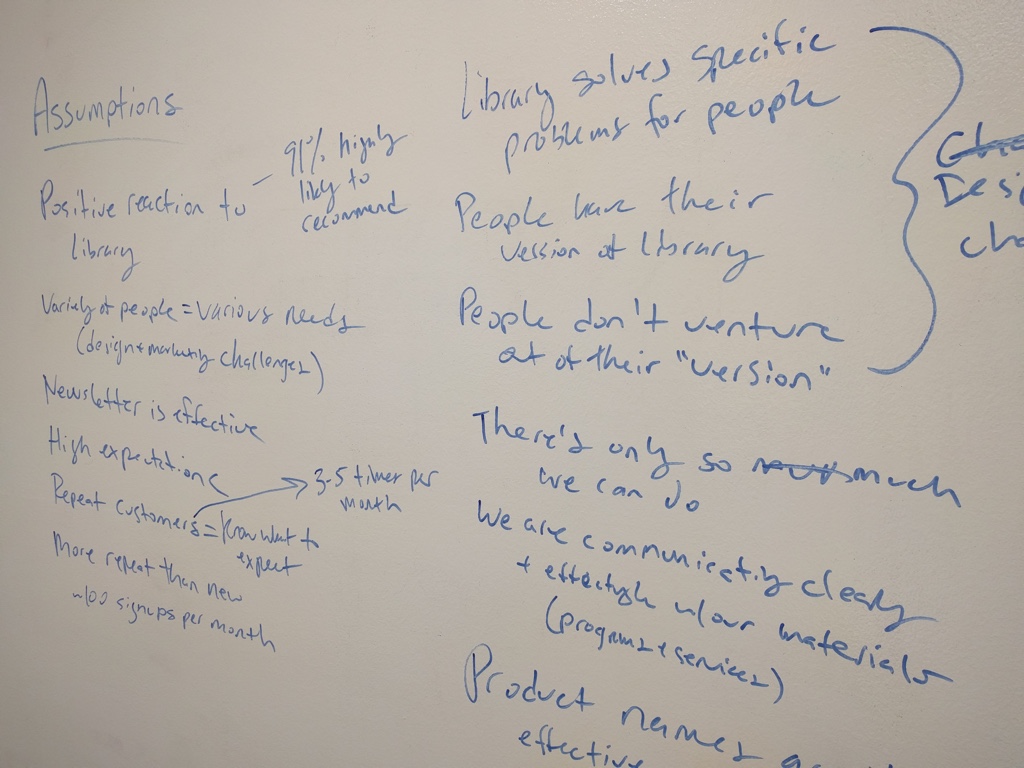 Assumptions
Positive reaction to
library
— 91% highly
likely to
recommend
Variety of people = various needs
(design + marketing challenges)
Newsletter is effective
High expectations
Repeat customers = know what to
expect
3-5 times per
month
More repeat than new
signups per month
Library solves specific
problems for people
People have their
version of library
People don't venture
out of their "version"
There's only so much
we can do
We are communicating clearly
+ effectively w/our materials
(programs + services)
Product names
effective
Desi
cha